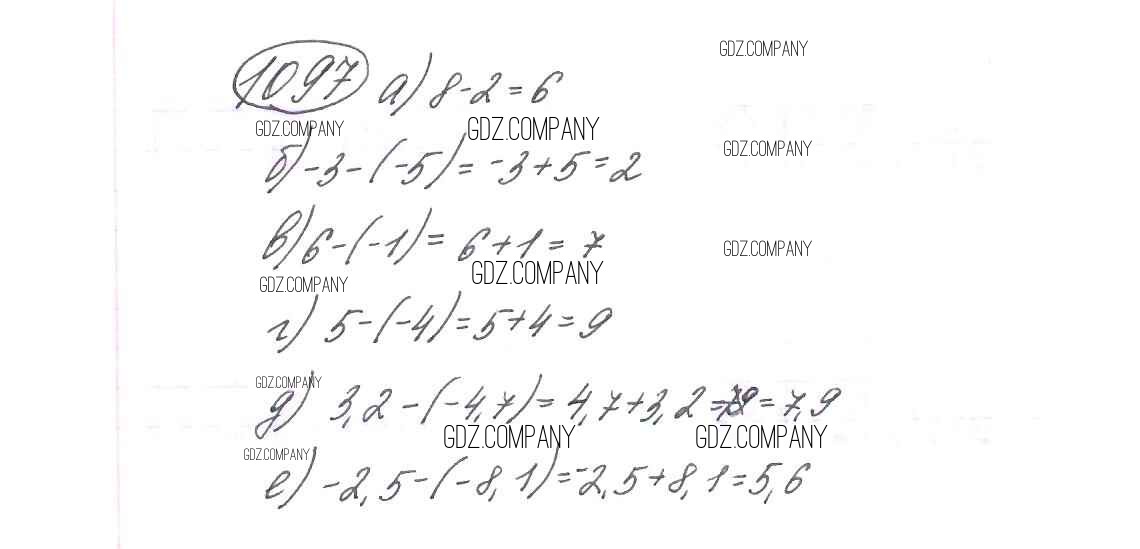 GDZ.COMPANY
1097 а) 8-2=6
GDZ.COMPANY GDZ.COMPANY
GDZ.COMPANY
б) -3-(-5)= -3+5=2
в) 6-(-1)= 6+1=7
GDZ.COMPANY
GDZ.COMPANY GDZ.COMPANY
г) 5-(-4)=5+4=9
GDZ.COMPANY
д) 3,2-(-4,7)=4,7+3,2=7,9
GDZ.COMPANY GDZ.COMPANY
GDZ.COMPANY
е) -2,5-(-8,1)=-2,5+8,1=5,6